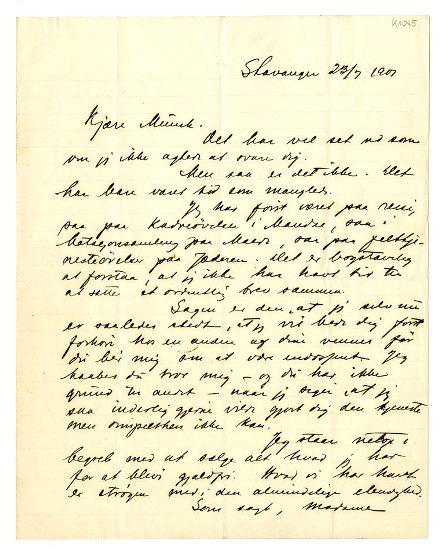 K1045
Stavanger 23/7 1901
Kjære Munch.
Det har vel set ud som
om jeg ikke agtede at svare dig.
Men saa er det ikke. Det
har bare været tid som mangled.
Jeg har först været paa
paa Kadreövelse i Mandal, saa i
bataljonsamling paa Moen, saa paa felttje-
nesteövelser paa Jæderen. Det er bogstavelig
at forstaa, at jeg ikke har havt tid til
at sætte et ordentlig brev sammen.
Sagen er den, at jeg selv nu
er saaledes stedt, at jeg vil bede dig först
forhöre hos en anden af dine venner för
du beir mig om at være endossent. Jeg
haaber du tror mig – og du har ikke
grund til andet – naar jeg siger, at jeg
saa inderlig gjerne vilde gjort dig den tjeneste
men ikke kan.
Jeg staar netop i
begreb med at sælge alt hvad jeg har
for at blive gjældfri. Hvad vi har havt
er ströget med i den almindelige elendighed.
Som sagt,